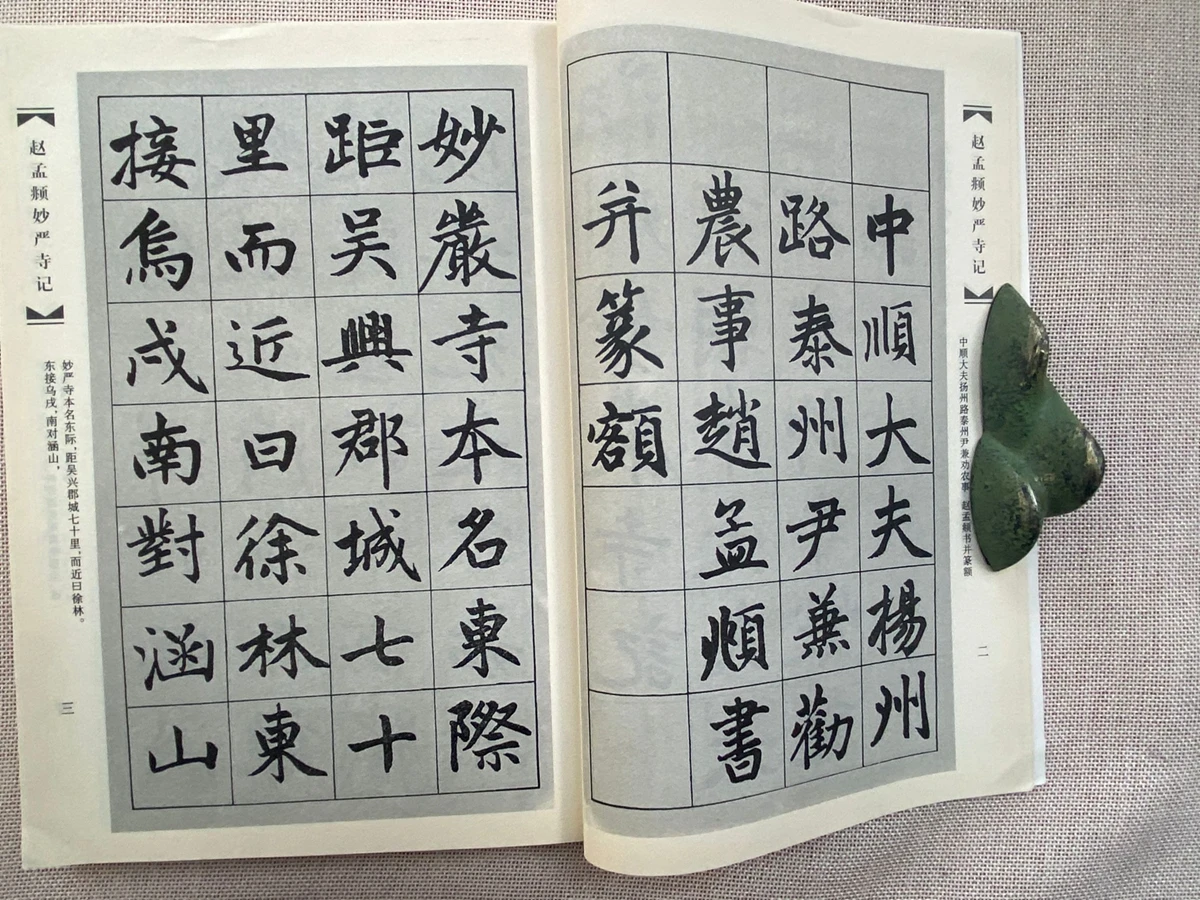 赵孟頫妙严寺记
中順大夫楊州
路泰州尹蒹勸
農事趙孟頫書
并篆額
中顺大夫扬州路泰州尹兼劝农事 赵孟頫书并篆额
二
妙嚴寺本名東際
距吴興郡城七十
里而近曰徐林東
接烏戍南對涵山
赵孟頫妙严寺记
妙严寺本名东际,距吴兴郡城七十里,而近曰徐林。
东接乌戍,南对涵山,
三